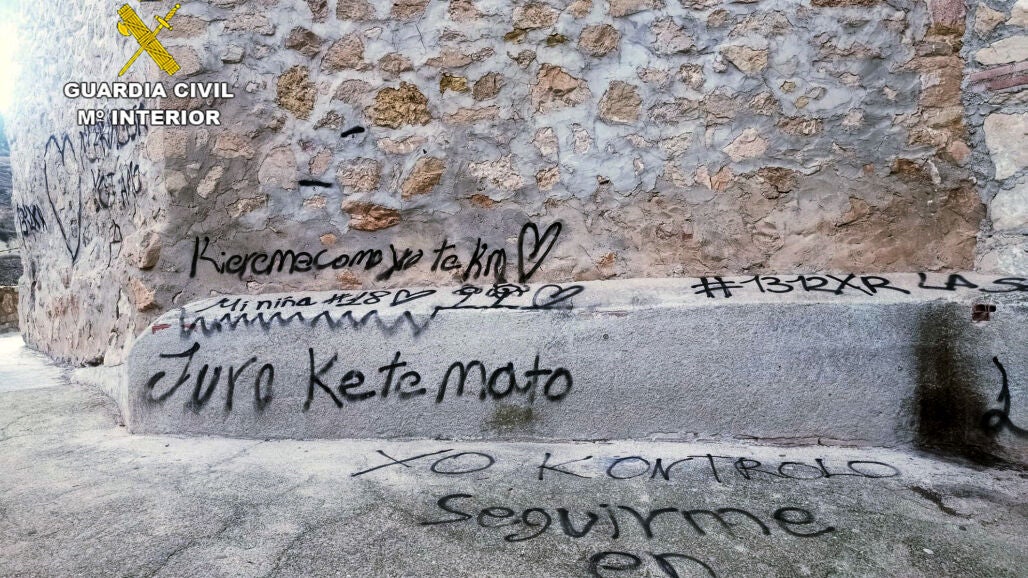 GUARDIA CIVIL
Mº INTERIOR
KETAMO
Kieremecomo yo te km
Mi niña #18
#1312XR LAS
Juro Kete mato
XO KONTROLO
Seguirme
en